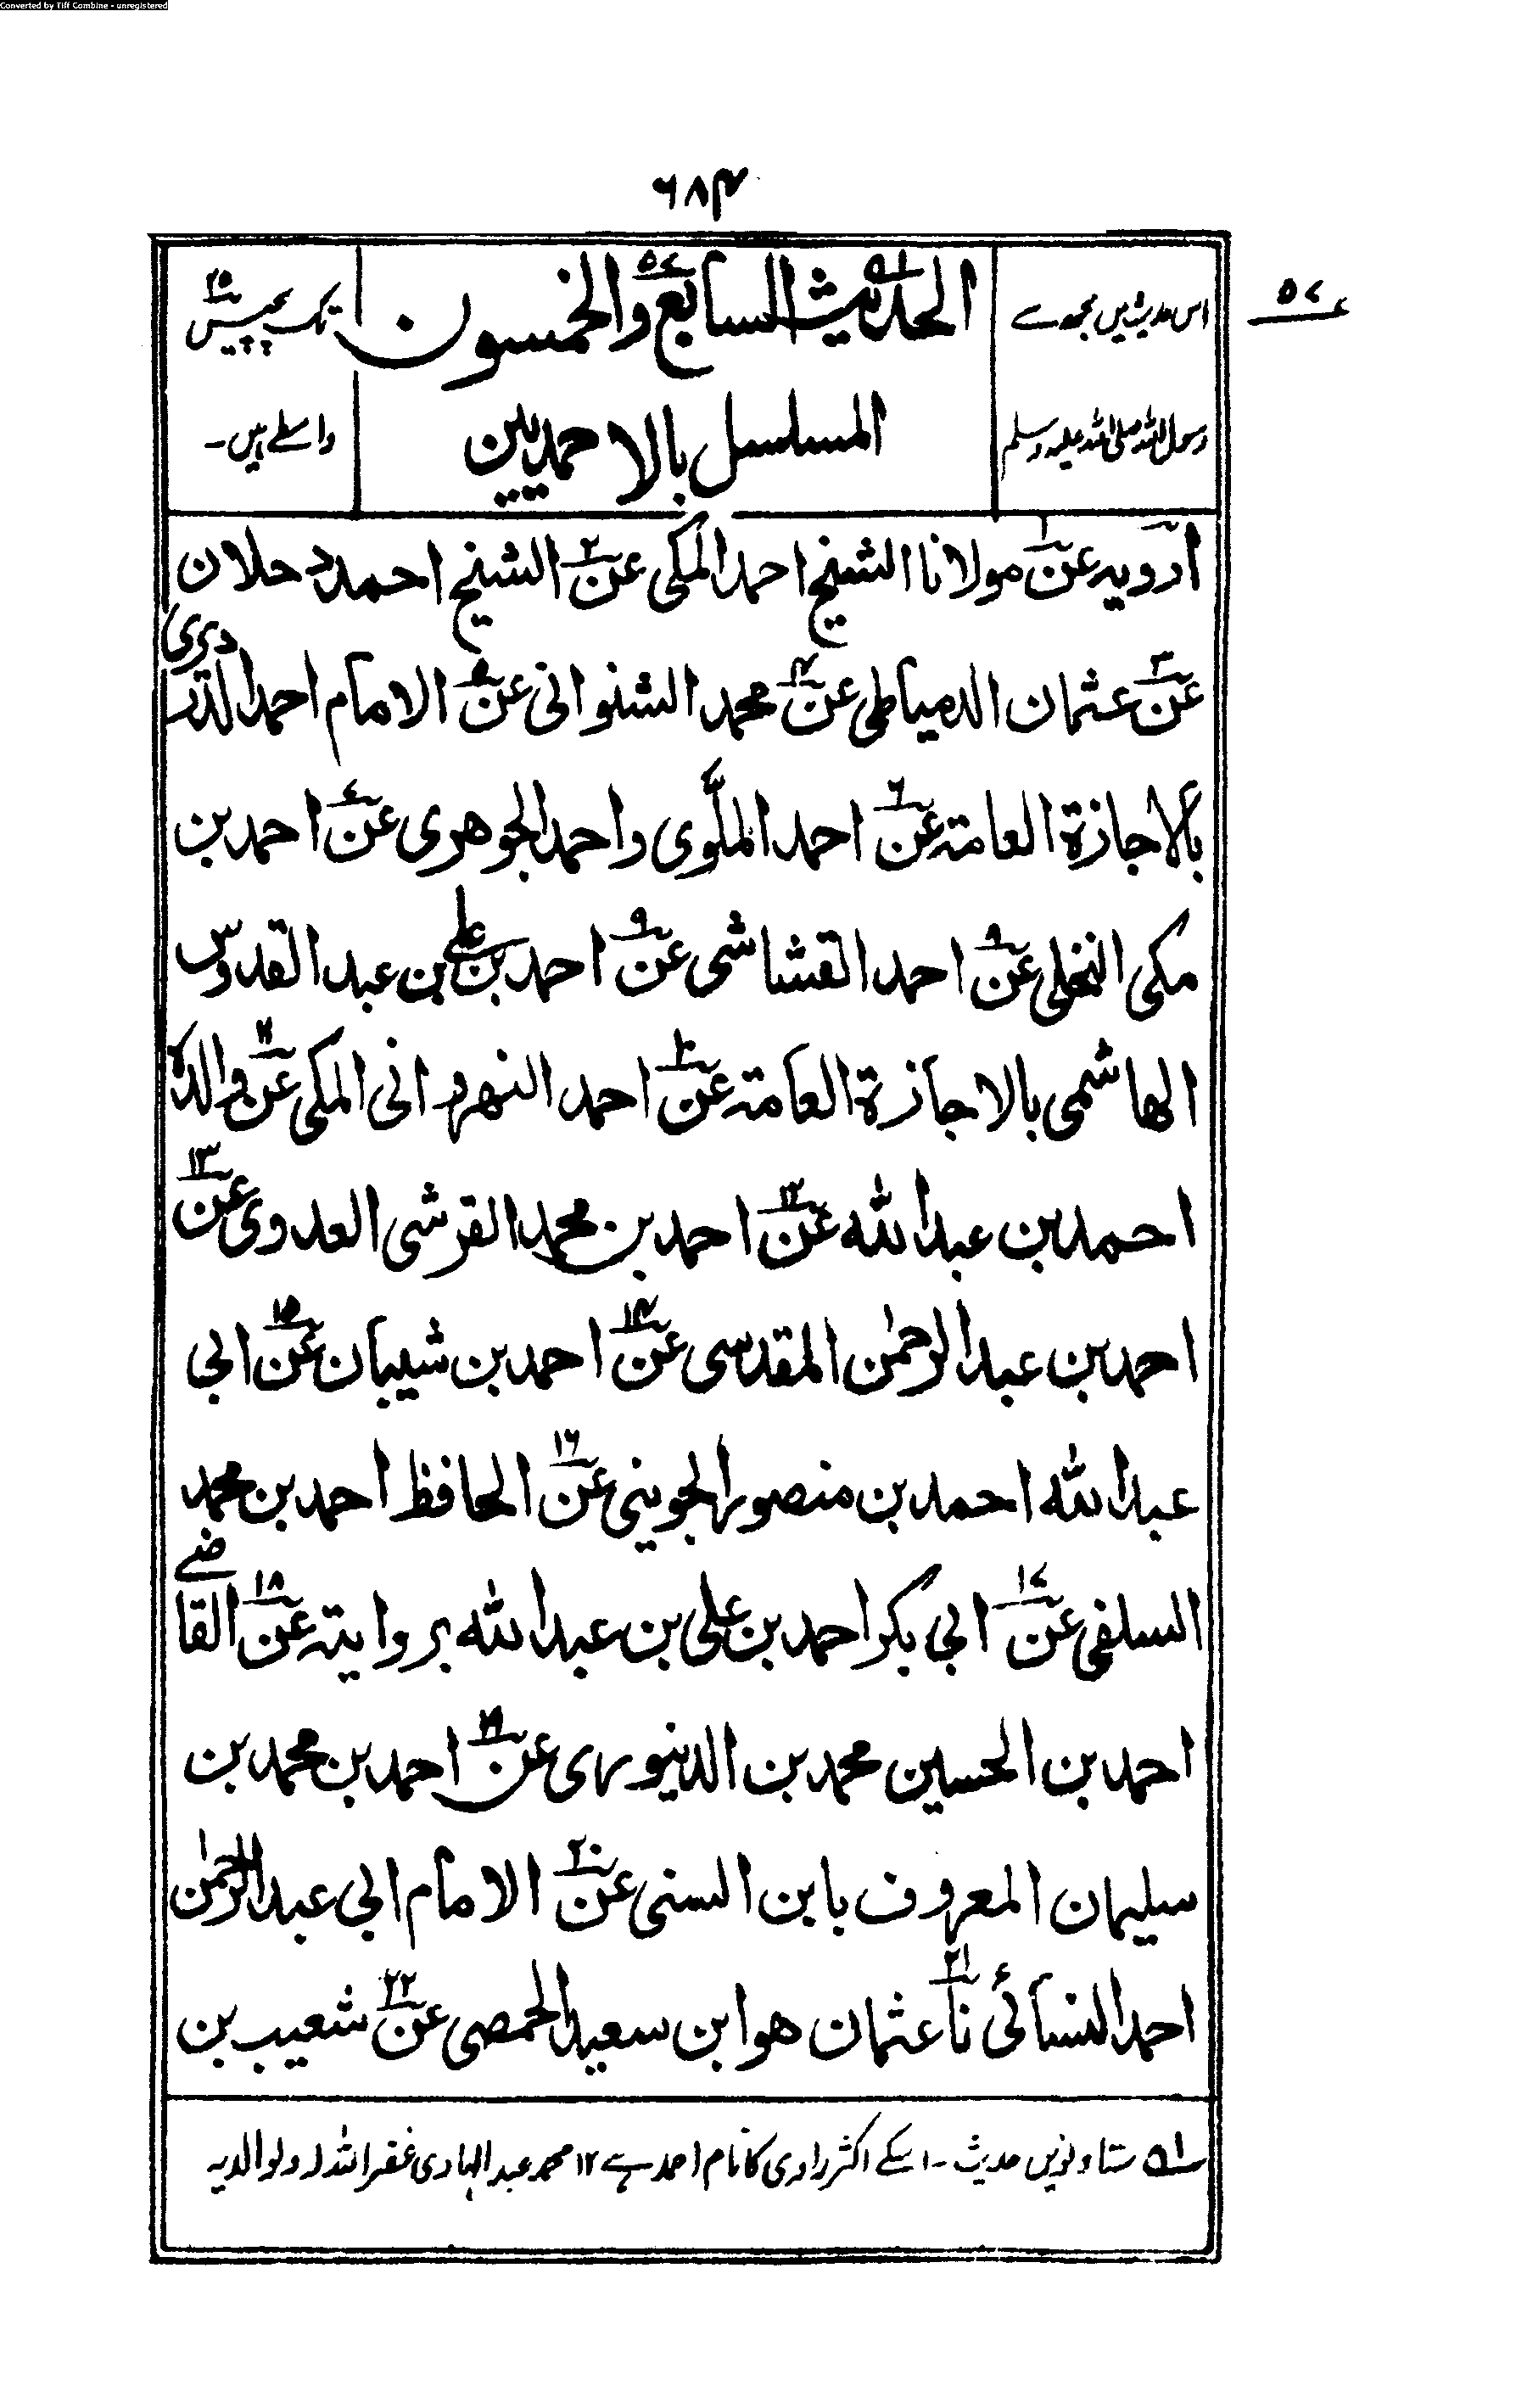 Converted by Tiff Combine - unregistered
۶۸۴
۵۷
اس حدیث میں مجھ سے
الحدیث السابع والخمسون
تک پچیس
۲۵
رسول اللہ صلی اللہ علیہ وسلم
المسلسل بالاحمدیین
واسطے ہیں۔
ارویہ عن۱ مولانا الشیخ احمد المکی عن۲ الشیخ احمد دحلان
عن۳ عثمان الدمیاطی عن۴ محمد الشنوانی عن۵ الامام احمد الدردیری
بالاجازة العامة عن۶ احمد الملّوی واحمد الجوهری عن۷ احمد بن
مکی النخلی عن احمد القشاشی عن۹ احمد بن علی بن عبد القدوس
الهاشمی بالاجازة العامة عن۱۰ احمد النهروانی المکی عن۱۱ والده
احمد بن عبد الله عن۱۲ احمد بن محمد القرشی العدوی عن۱۳
احمد بن عبد الرحمٰن المقدسی عن۱۴ احمد بن شیبان عن۱۵ ابی
عبد الله احمد بن منصور الجوینی عن۱۶ الحافظ احمد بن محمد
السلفی عن۱۷ ابی بکر احمد بن علی بن عبد الله بروایته عن۱۸ القاضے
احمد بن الحسین محمد بن الدینوری عن۱۹ احمد بن محمد بن
سلیمان المعروف بابن السنی عن۲۰ الامام ابی عبد الرحمٰن
احمد النسائی نا۲۱ عثمان هو ابن سعید الحمصی عن۲۲ شعیب بن
ستاونویں حدیث۔ اسکے اکثر راوی کا نام احمد ہے ۱۲ محمد عبد الہادی غفر اللہ لہ ولوالدیہ